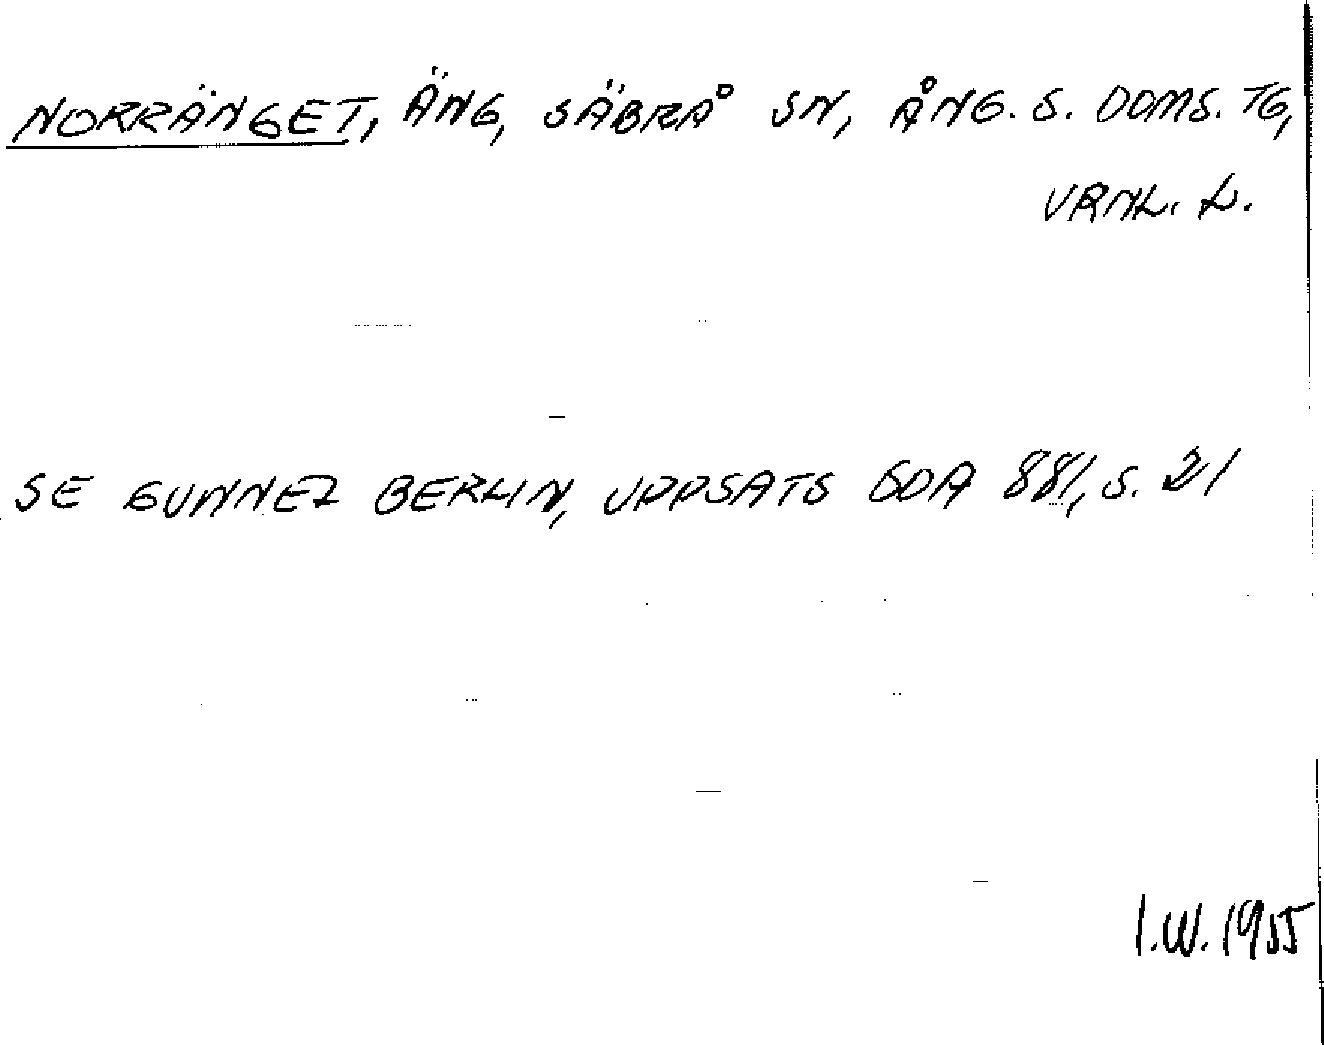 NORRÄNGET, ÄNG, SÄBRÅ SN, ÅNG. S. DOMS. TG,
VRNL. L.
SE GUNNEL BERLIN, UPPSATS GDA 881, S. 21
I.W. 1955